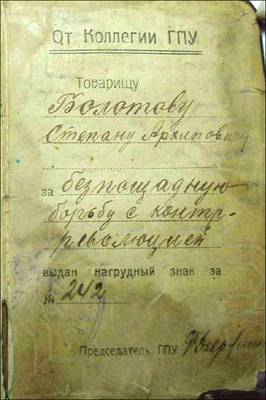 От Коллегии ГПУ
Товарищу
Болотову
Степану Архиповичу
за безпощадную
борьбу с контр-
революцией
выдан нагрудный знак за
№ 242
Председатель ГПУ